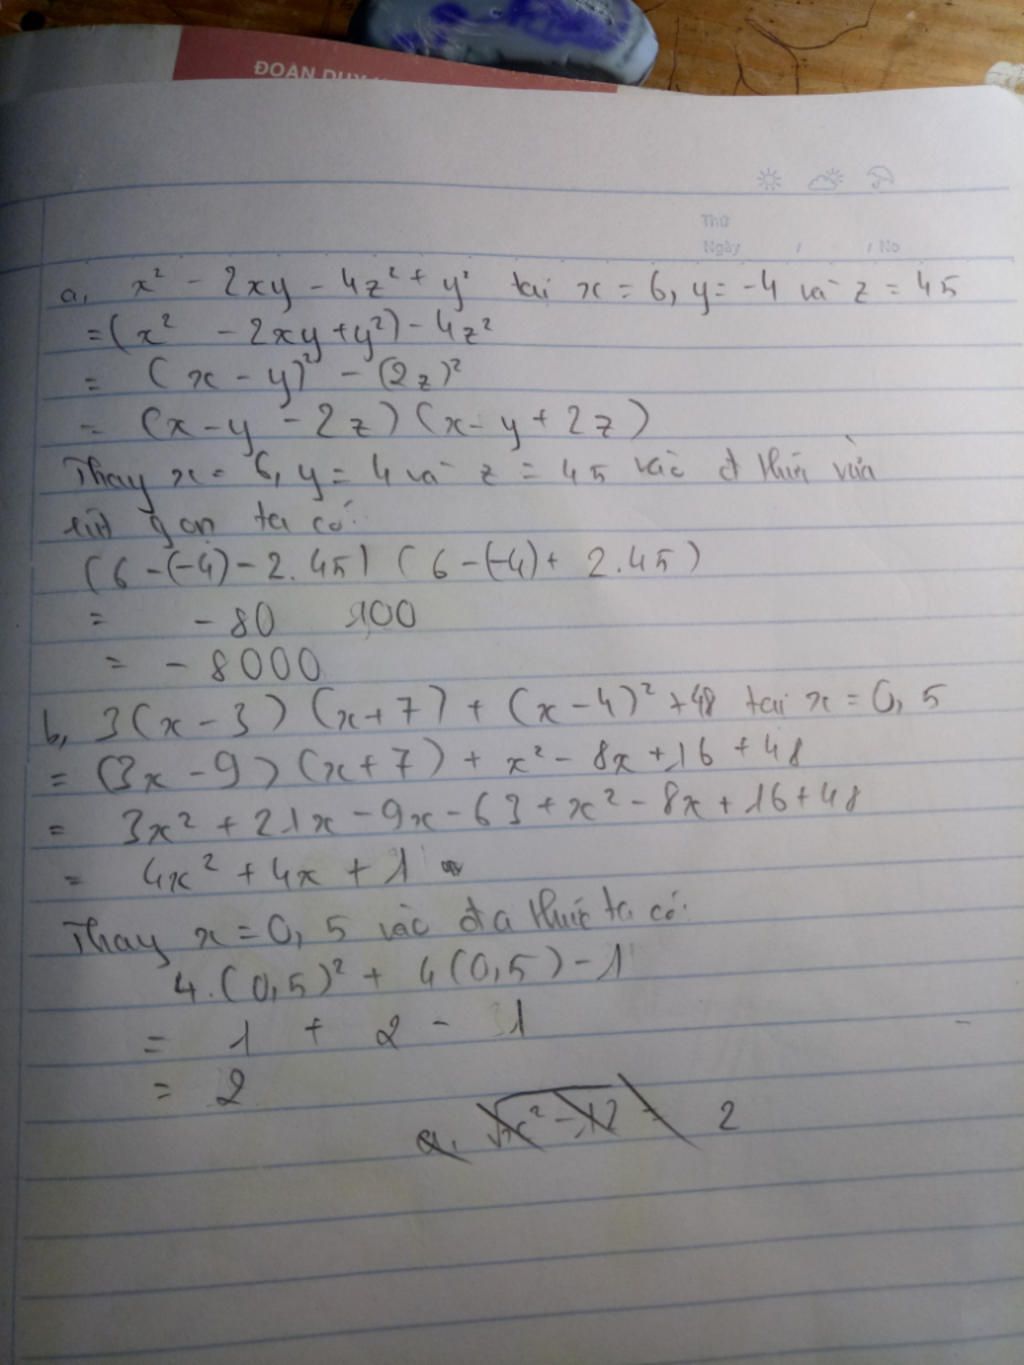 ĐOÀN DUY
Thứ
Ngày / / No
a, x² - 2xy - 4z² + y² tại x = 6, y = -4 và z = 45
= (x² - 2xy + y²) - 4z²
= (x - y)² - (2z)²
= (x - y - 2z) (x - y + 2z)
Thay x = 6, y = 4 và z = 45 vào đ thức vừa
rút gọn ta có:
(6 - (-4) - 2.45) (6 - (-4) + 2.45)
= - 80 100
= - 8000
b, 3(x - 3) (x + 7) + (x - 4)² + 48 tại x = 0,5
= (3x - 9) (x + 7) + x² - 8x + 16 + 48
= 3x² + 21x - 9x - 63 + x² - 8x + 16 + 48
= 4x² + 4x + 1
Thay x = 0,5 vào đa thức ta có:
4.(0,5)² + 4(0,5) - 1
= 1 + 2 - 1
= 2
2